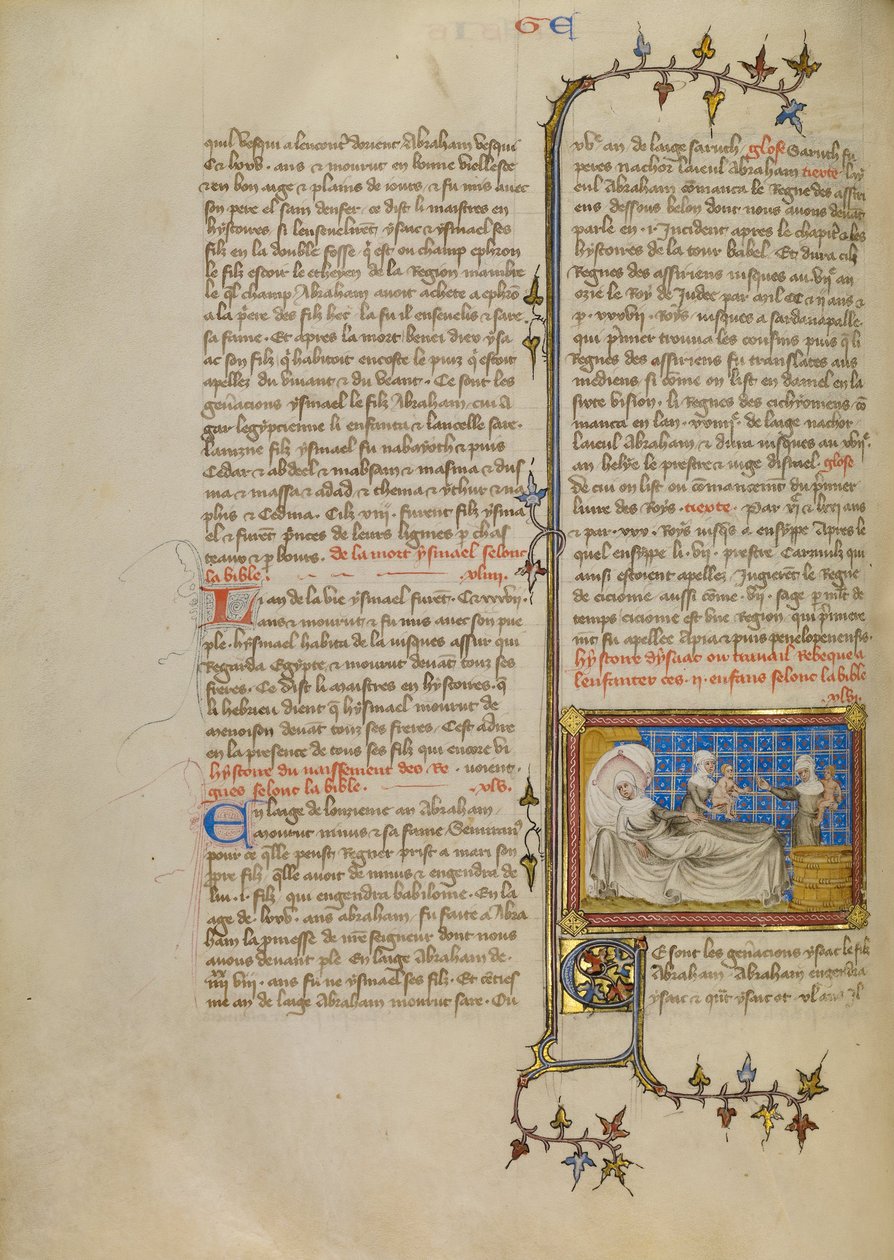 GE
quil vesqui a lencontre dorient Abraham vesqui
C & lxxv. ans & mourut en bonne viellesce
& en bon aage & plains de iours. & fu mis avec
son pere el sain denfer. ce dist li maistres en
hystoires. si lensevelirent ysaac & ysmael ses
filz en la double fosse. q̄ est ou champ ephron
le filz escoir le etheyen de la Region mambre
le q̄l champ Abraham avoit achete a ephrō
a la p̄ere des filz heth. la fu il ensevelis & sare
sa fame. Et apres la mort benei diex ysa
ac son filz q̄ habitoit encoste le puiz q̄ estoit
apellez du vivant & du veant. Ce sont les
gen̄acions ysmael le filz Abraham. cui A
gar legypcienne li enfanta & lancelle sare.
lainzne filz ysmael fu nabayoth & puis
Cedar & abdeel & mabsam & masma & dus
ma & massa & adad & thema & ythur & na
phis & Cedma. Cilz xiii. furent filz ysma
el & furēt p̄nces de leurs lignies p chas
teaux & p bours. de la mort ysmael selonc
la bible. xliiii.
Li an de la vie ysmael furēt. C & xxxvii.
ans & mourut & fu mis avec son pue
ple. hysmael habita de la iusques assur qui
Regarda Egypte & mourut devāt touz ses
freres. Ce dist li maistres en hystoires. q̄
li hebrieu dient q̄ hysmael mourut de
menoison devāt touz ses freres. Cest adire
en la presence de tous ses filz qui encore vi
hystoire du naissement des Re . voient.
gnes selonc la bible. xlv.
En laage de lonzieme an Abraham.
mourut ninus & sa fame Semirami
pour ce q̄lle peust Regner prist a mari son
p̄pre filz. q̄lle avoit de ninus & engendra de
lui .i. filz. qui engendra babiloine. En la
age de. lxxv. ans abraham. fu faite a Abra
ham la p̄messe de n̄re seigneur dont nous
avons devant ple. En laage Abraham de.
iiii xx vi. ans fu ne ysmael ses filz. Et cēties
me an de laage Abraham mourut sare. Ou
xve an de laage saruth. glose Saruth fu
peres nachor laieul Abraham tiexte. lay
eul Abraham cōmanca le Regne des assiri
ens dessous belon dont nous avons devāt
parle en .i. Incident apres le chapit̄ & les
hystoires de la tour babel. Et dura cilz
Regnes des assiriens iusques au vii e an
ozie le Roy de Judee par mil CC & ii ans &
p. xxxvii. Roys. iusques a sardanapalle.
qui p̄mier trouva les coussins puis q̄ li
Regnes des assiriens fu translates aus
mediens. si cōme on list en daniel en la
sixte vision. li Regnes des cichyoniens. cō
manca en lan. de laage nachor.
laieul Abraham & dura iusques au xviie.
an belye le prestre & iuge disrael. glose
De cui on list ou cōmancemēt du p̄mier
livre des Roys. tiexte. Par & ans
& par. xxx. Roys iusq̄s a ensyppe Apres le
quel ensyppe li. vii. prestre Carmilz qui
ainsi estoient apellez Jugierēt le Regne
de cicione aussi cōme .vii. sage p mlt de
temps cicione est une Region. qui p̄miere
mt fu apellee Apia & puis penelopenensis.
hystoire dysaac ou travail Rebeque a
lenfanter ces .ii. enfans selonc la bible
xlvi.
Ce sont les gen̄acions ysaac le filz
Abraham. Abraham engendra
ysaac & quāt ysaac ot. xl ans il